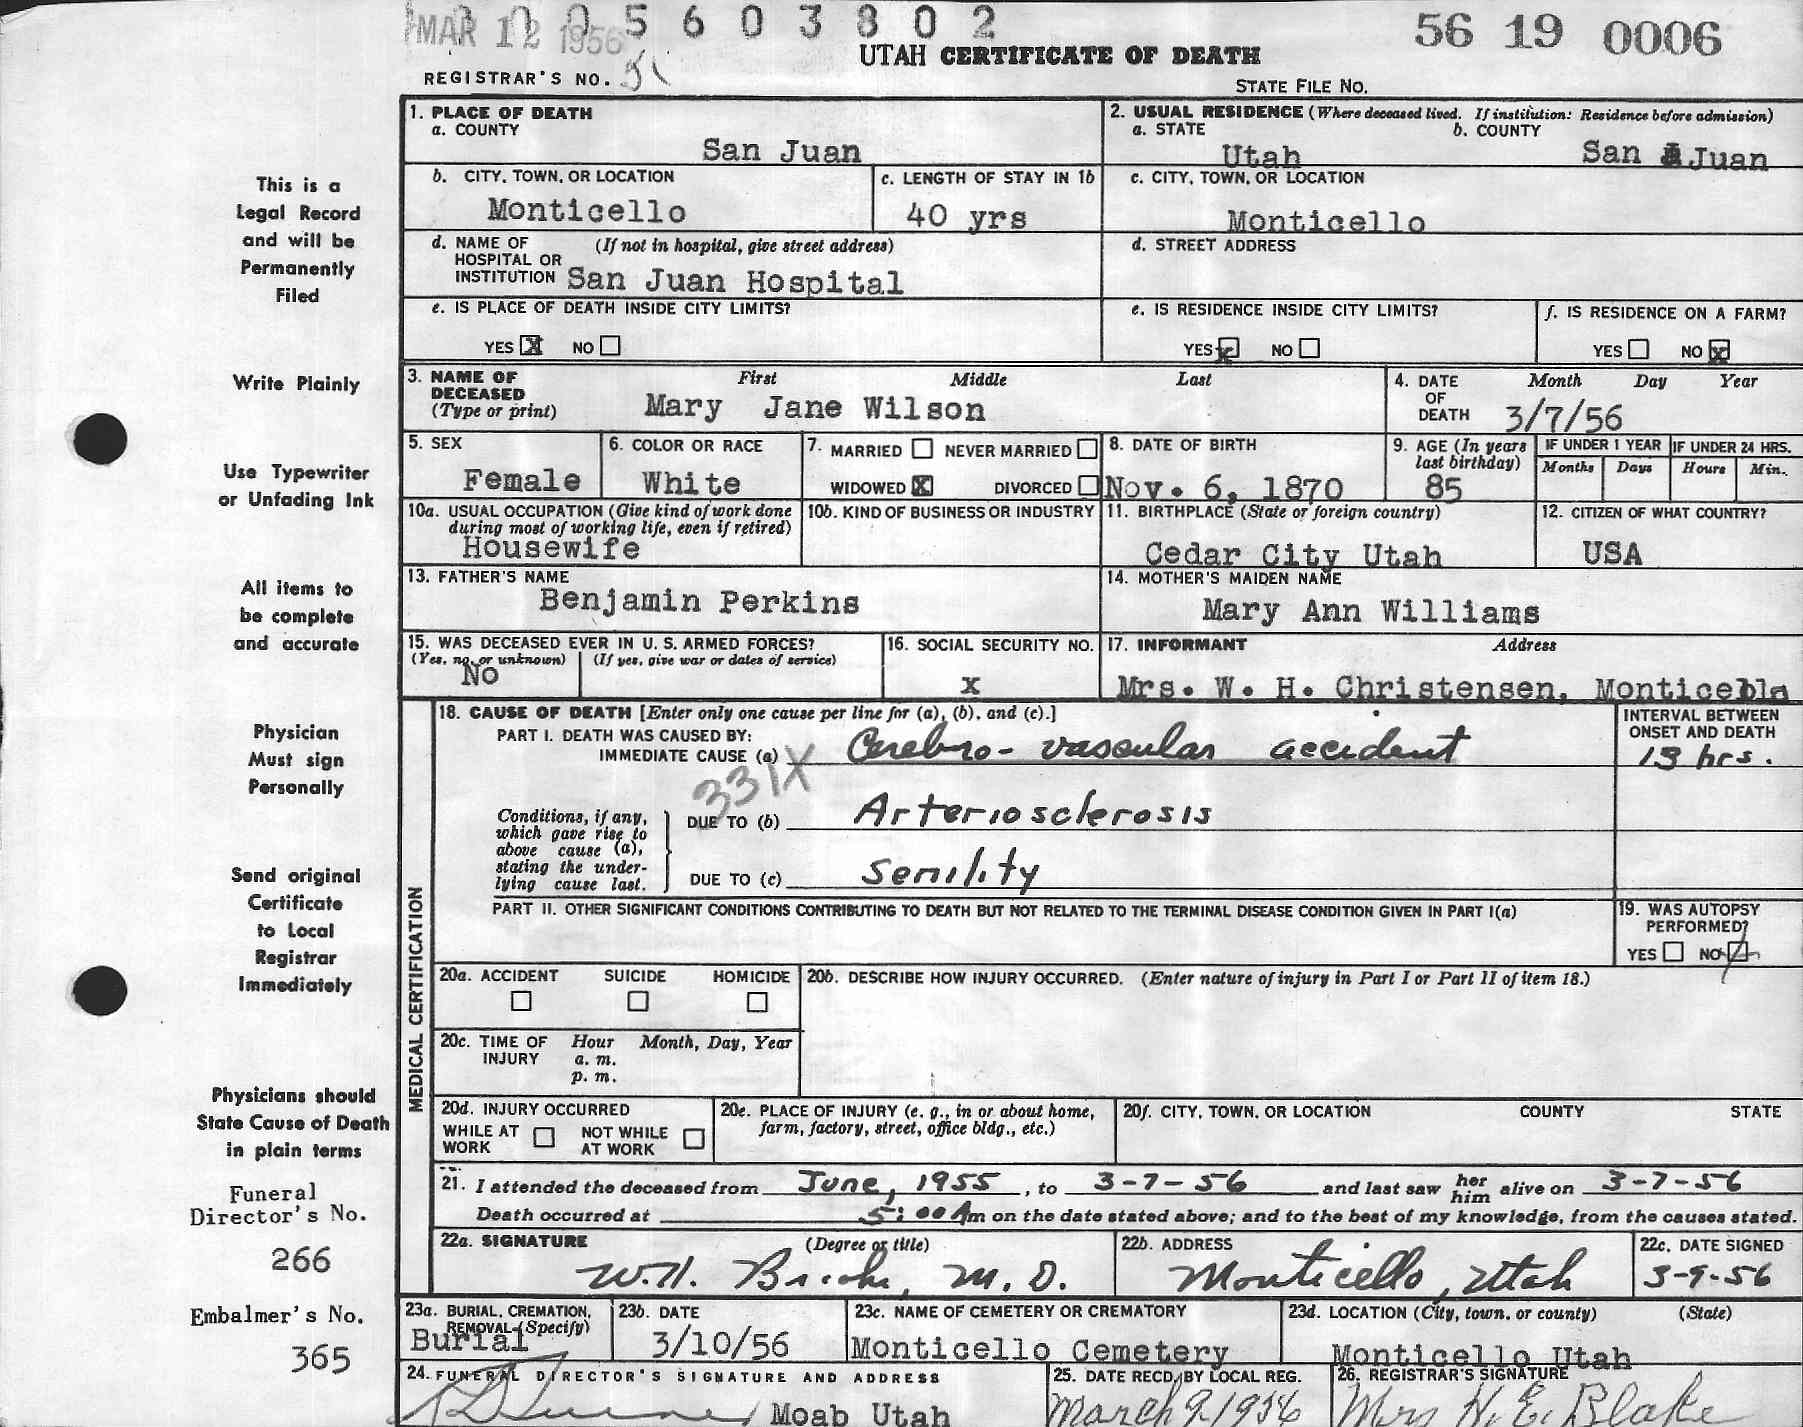 MAR 12 1956
5 6 0 3 8 0 2
56 19 0006
UTAH CERTIFICATE OF DEATH
REGISTRAR'S NO.
STATE FILE NO.
This is a
Legal Record
and will be
Permanently
Filed
Write Plainly
Use Typewriter
or Unfading Ink
All items to
be complete
and accurate
Physician
Must sign
Personally
Send original
Certificate
to Local
Registrar
Immediately
Physicians should
State Cause of Death
in plain terms
Funeral
Director's No.
266
Embalmer's No.
365
1. PLACE OF DEATH
a. COUNTY
San Juan
2. USUAL RESIDENCE (Where deceased lived. If institution: Residence before admission)
a. STATE b. COUNTY
Utah San Juan
b. CITY, TOWN, OR LOCATION
Monticello
c. LENGTH OF STAY IN 1b
40 yrs
c. CITY, TOWN, OR LOCATION
Monticello
d. NAME OF (If not in hospital, give street address)
HOSPITAL OR
INSTITUTION San Juan Hospital
d. STREET ADDRESS
e. IS PLACE OF DEATH INSIDE CITY LIMITS?
YES X NO
e. IS RESIDENCE INSIDE CITY LIMITS?
YES X NO
f. IS RESIDENCE ON A FARM?
YES NO X
3. NAME OF First Middle Last
DECEASED
(Type or print) Mary Jane Wilson
4. DATE Month Day Year
OF
DEATH 3/7/56
5. SEX
Female
6. COLOR OR RACE
White
7. MARRIED NEVER MARRIED
WIDOWED X DIVORCED
8. DATE OF BIRTH
Nov. 6, 1870
9. AGE (In years
last birthday)
85
IF UNDER 1 YEAR IF UNDER 24 HRS.
Months Days Hours Min.
10a. USUAL OCCUPATION (Give kind of work done
during most of working life, even if retired)
Housewife
10b. KIND OF BUSINESS OR INDUSTRY
11. BIRTHPLACE (State or foreign country)
Cedar City Utah
12. CITIZEN OF WHAT COUNTRY?
USA
13. FATHER'S NAME
Benjamin Perkins
14. MOTHER'S MAIDEN NAME
Mary Ann Williams
15. WAS DECEASED EVER IN U. S. ARMED FORCES?
(Yes, no, or unknown) (If yes, give war or dates of service)
No
16. SOCIAL SECURITY NO.
x
17. INFORMANT Address
Mrs. W. H. Christensen, Monticello
MEDICAL CERTIFICATION
18. CAUSE OF DEATH [Enter only one cause per line for (a), (b), and (c).]
PART I. DEATH WAS CAUSED BY:
IMMEDIATE CAUSE (a) Cerebro-vascular accident
331X
INTERVAL BETWEEN
ONSET AND DEATH
13 hrs.
Conditions, if any,
which gave rise to
above cause (a),
stating the under-
lying cause last.
DUE TO (b) Arteriosclerosis
DUE TO (c) Senility
PART II. OTHER SIGNIFICANT CONDITIONS CONTRIBUTING TO DEATH BUT NOT RELATED TO THE TERMINAL DISEASE CONDITION GIVEN IN PART I(a)
19. WAS AUTOPSY
PERFORMED?
YES NO
20a. ACCIDENT SUICIDE HOMICIDE
20b. DESCRIBE HOW INJURY OCCURRED. (Enter nature of injury in Part I or Part II of item 18.)
20c. TIME OF Hour Month, Day, Year
INJURY a. m.
p. m.
20d. INJURY OCCURRED
WHILE AT NOT WHILE
WORK AT WORK
20e. PLACE OF INJURY (e. g., in or about home,
farm, factory, street, office bldg., etc.)
20f. CITY, TOWN, OR LOCATION COUNTY STATE
21. I attended the deceased from June, 1955, to 3-7-56 and last saw her him alive on 3-7-56
Death occurred at 5:00 Am on the date stated above; and to the best of my knowledge, from the causes stated.
22a. SIGNATURE (Degree or title)
W.H. M.D.
22b. ADDRESS
Monticello, Utah
22c. DATE SIGNED
3-9-56
23a. BURIAL, CREMATION,
REMOVAL (Specify)
Burial
23b. DATE
3/10/56
23c. NAME OF CEMETERY OR CREMATORY
Monticello Cemetery
23d. LOCATION (City, town, or county) (State)
Monticello Utah
24. FUNERAL DIRECTOR'S SIGNATURE AND ADDRESS
Moab Utah
25. DATE RECD. BY LOCAL REG.
March 9, 1956
26. REGISTRAR'S SIGNATURE
Mrs H. E. Blake